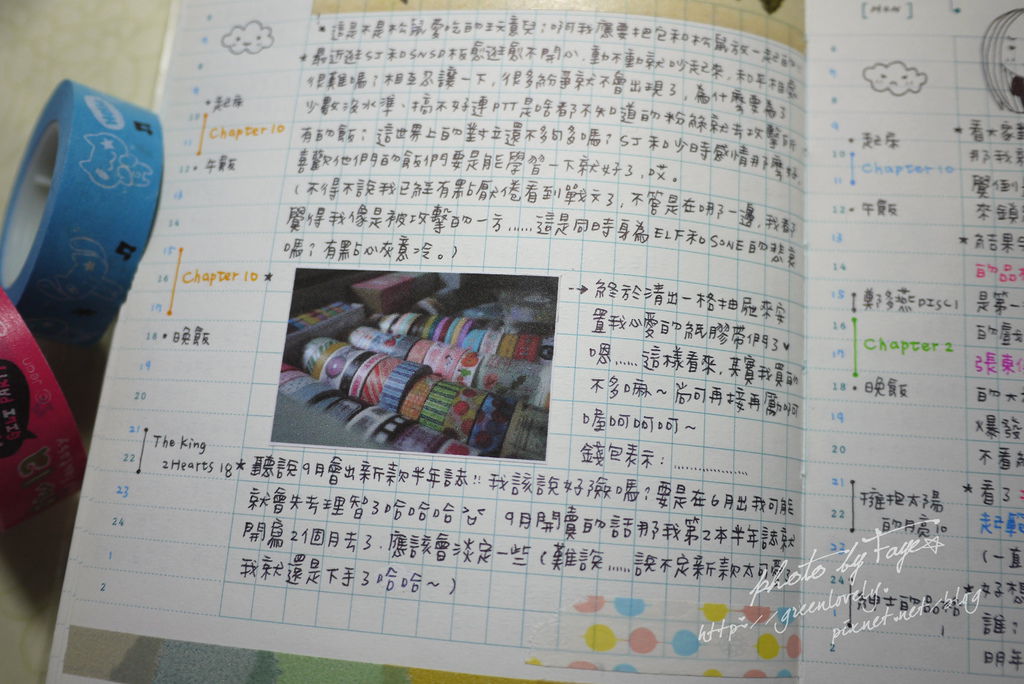 *這是不是松鼠愛吃的玩意兒；啊我應要把包和松鼠放一起的
*最近逛SJ和SNSD板愈逛愈不開心，動不動就吵起來，和平相處
很難嗎？相互忍讓一下，很多紛爭就不會出現了，為什麼要為了
少數沒水準、搞不好連PTT是啥都不知道的粉絲就去攻擊所
有的飯；這世界上的對立還不夠多嗎？SJ和少時感情那麼好，
喜歡他們的飯們要是能學習一下就好了，哎。
(不得不說我已經有點厭倦看到戰文了，不管是在哪一邊，我都
覺得我像是被攻擊的一方......這是同時身為ELF和SONE的悲哀
嗎？有點心灰意冷。)
→終於清出一格抽屜來安
置我心愛的紙膠帶們了♥
嗯......這樣看來，其實我買的
不多嘛～尚可再接再勵呵
喔呵呵呵呵～
錢包表示：..................
*聽說9月會出新款半年誌!! 我該說好險嗎？要是在6月出我可能
就會失去理智了哈哈哈 9月開賣的話那我第2本半年誌就
開寫2個月去了，應該會淡定一些(難說......說不定新款太可愛
我就還是下手了哈哈～)
9
10
11
12
14
15
16
17
18
19
20
21
22
23
24
1
2
•起床
Chapter 10
•午飯
Chapter 10 *
•晚飯
The King
2Hearts 18
•起床
Chapter 10
•午飯
鄭多燕DISC1
Chapter 2
•晚飯
擁抱太陽
的月亮10
紳士的品格
1
9
10
11
12
13
14
15
16
17
18
19
20
21
22
23
24
1
2
*看大家
那我
覺倒
來鎖
*有結果
的品
是第一
的處
張東
的大
X爆發
不看
*看了
起
(一直
*好想
誰；
明年
photo by Faye☆
http://greenlovely.
pixnet.net/blog